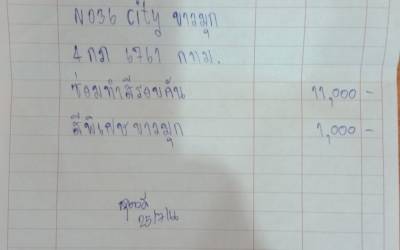 No36 city ขาวมุก
4 กภ 6761 กทม.
ซ่อมทำสีรอบคัน 11,000 -
สีพิเศษ ขาวมุก 1,000 -
25/7/66